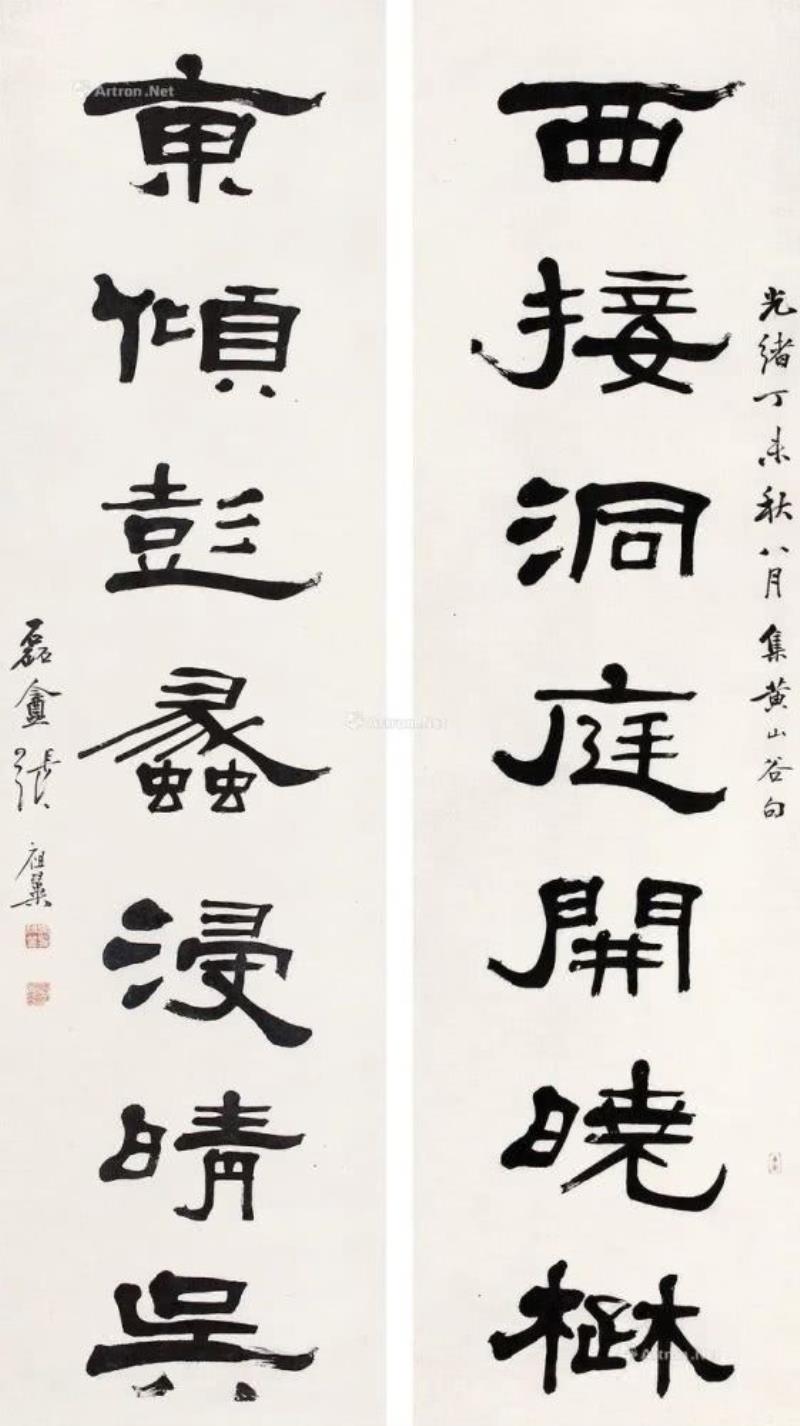 光緒丁未秋八月集黃山谷句
西接洞庭開曉楚
東傾彭蠡浸晴吳
磊盦張祖翼
Artron.Net
Artron.Net
Artron.Net